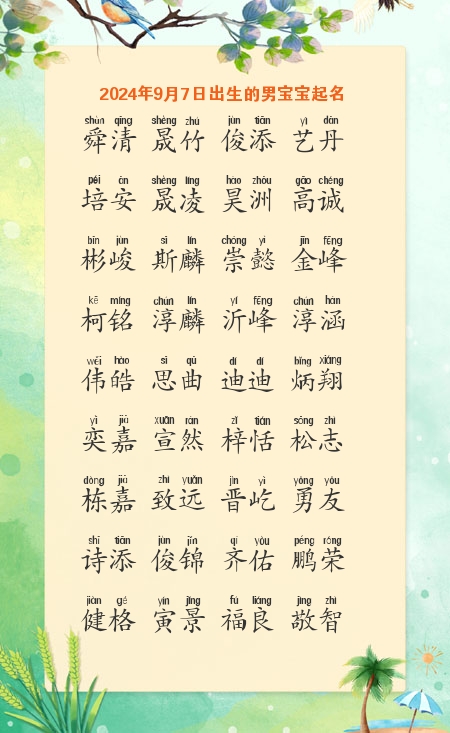 2024年9月7日出生的男宝宝起名
shùn qīng shèng zhú jùn tiān yì dān
舜清 晟竹 俊添 艺丹
péi ān shèng líng hào zhōu gāo chéng
培安 晟凌 昊洲 高诚
bīn jùn sī lín chóng yì jīn fēng
彬峻 斯麟 崇懿 金峰
kē míng chún lín yí fēng chún hán
柯铭 淳麟 沂峰 淳涵
wěi hào sī qǔ dí dí bǐng xiáng
伟皓 思曲 迪迪 炳翔
yì jiā xuān rán zǐ tián sōng zhì
奕嘉 宣然 梓恬 松志
dòng jiā zhì yuǎn jìn yì yǒng yǒu
栋嘉 致远 晋屹 勇友
shī tiān jùn jǐn qí yòu péng róng
诗添 俊锦 齐佑 鹏荣
jiàn gé yín jǐng fú liáng jìng zhì
健格 寅景 福良 敬智